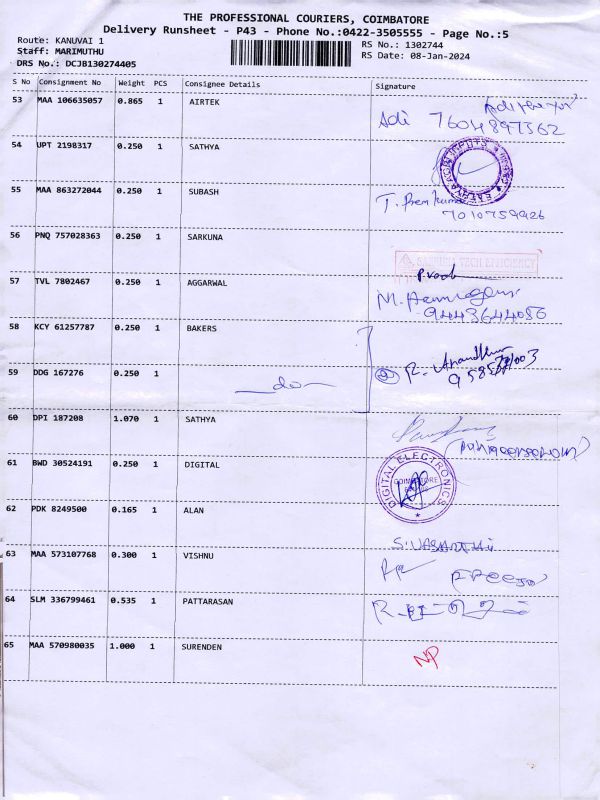 THE PROFESSIONAL COURIERS, COIMBATORE
Delivery Runsheet - P43 - Phone No.:0422-3505555 - Page No.:5
Route: KANUVAI 1
Staff: MARIMUTHU
DRS No.: DCJB130274405
RS No.: 1302744
RS Date: 08-Jan-2024
S No Consignment No Weight PCS Consignee Details Signature
53 MAA 106635057 0.865 1 AIRTEK
Adi 7604897362
54 UPT 2198317 0.250 1 SATHYA
55 MAA 863272044 0.250 1 SUBASH
T. Prem kumar
7010759926
56 PNQ 757028363 0.250 1 SARKUNA
SARKUNA TECH EFFICIENCY
57 TVL 7802467 0.250 1 AGGARWAL
9443644086
58 KCY 61257787 0.250 1 BAKERS
59 DDG 167276 0.250 1
do
60 DPI 187208 1.070 1 SATHYA
61 BWD 30524191 0.250 1 DIGITAL
DIGITAL ELECTRONICS
COIMBATORE
62 PDK 8249500 0.165 1 ALAN
63 MAA 573107768 0.300 1 VISHNU
64 SLM 336799461 0.535 1 PATTARASAN
65 MAA 570980035 1.000 1 SURENDEN
NP